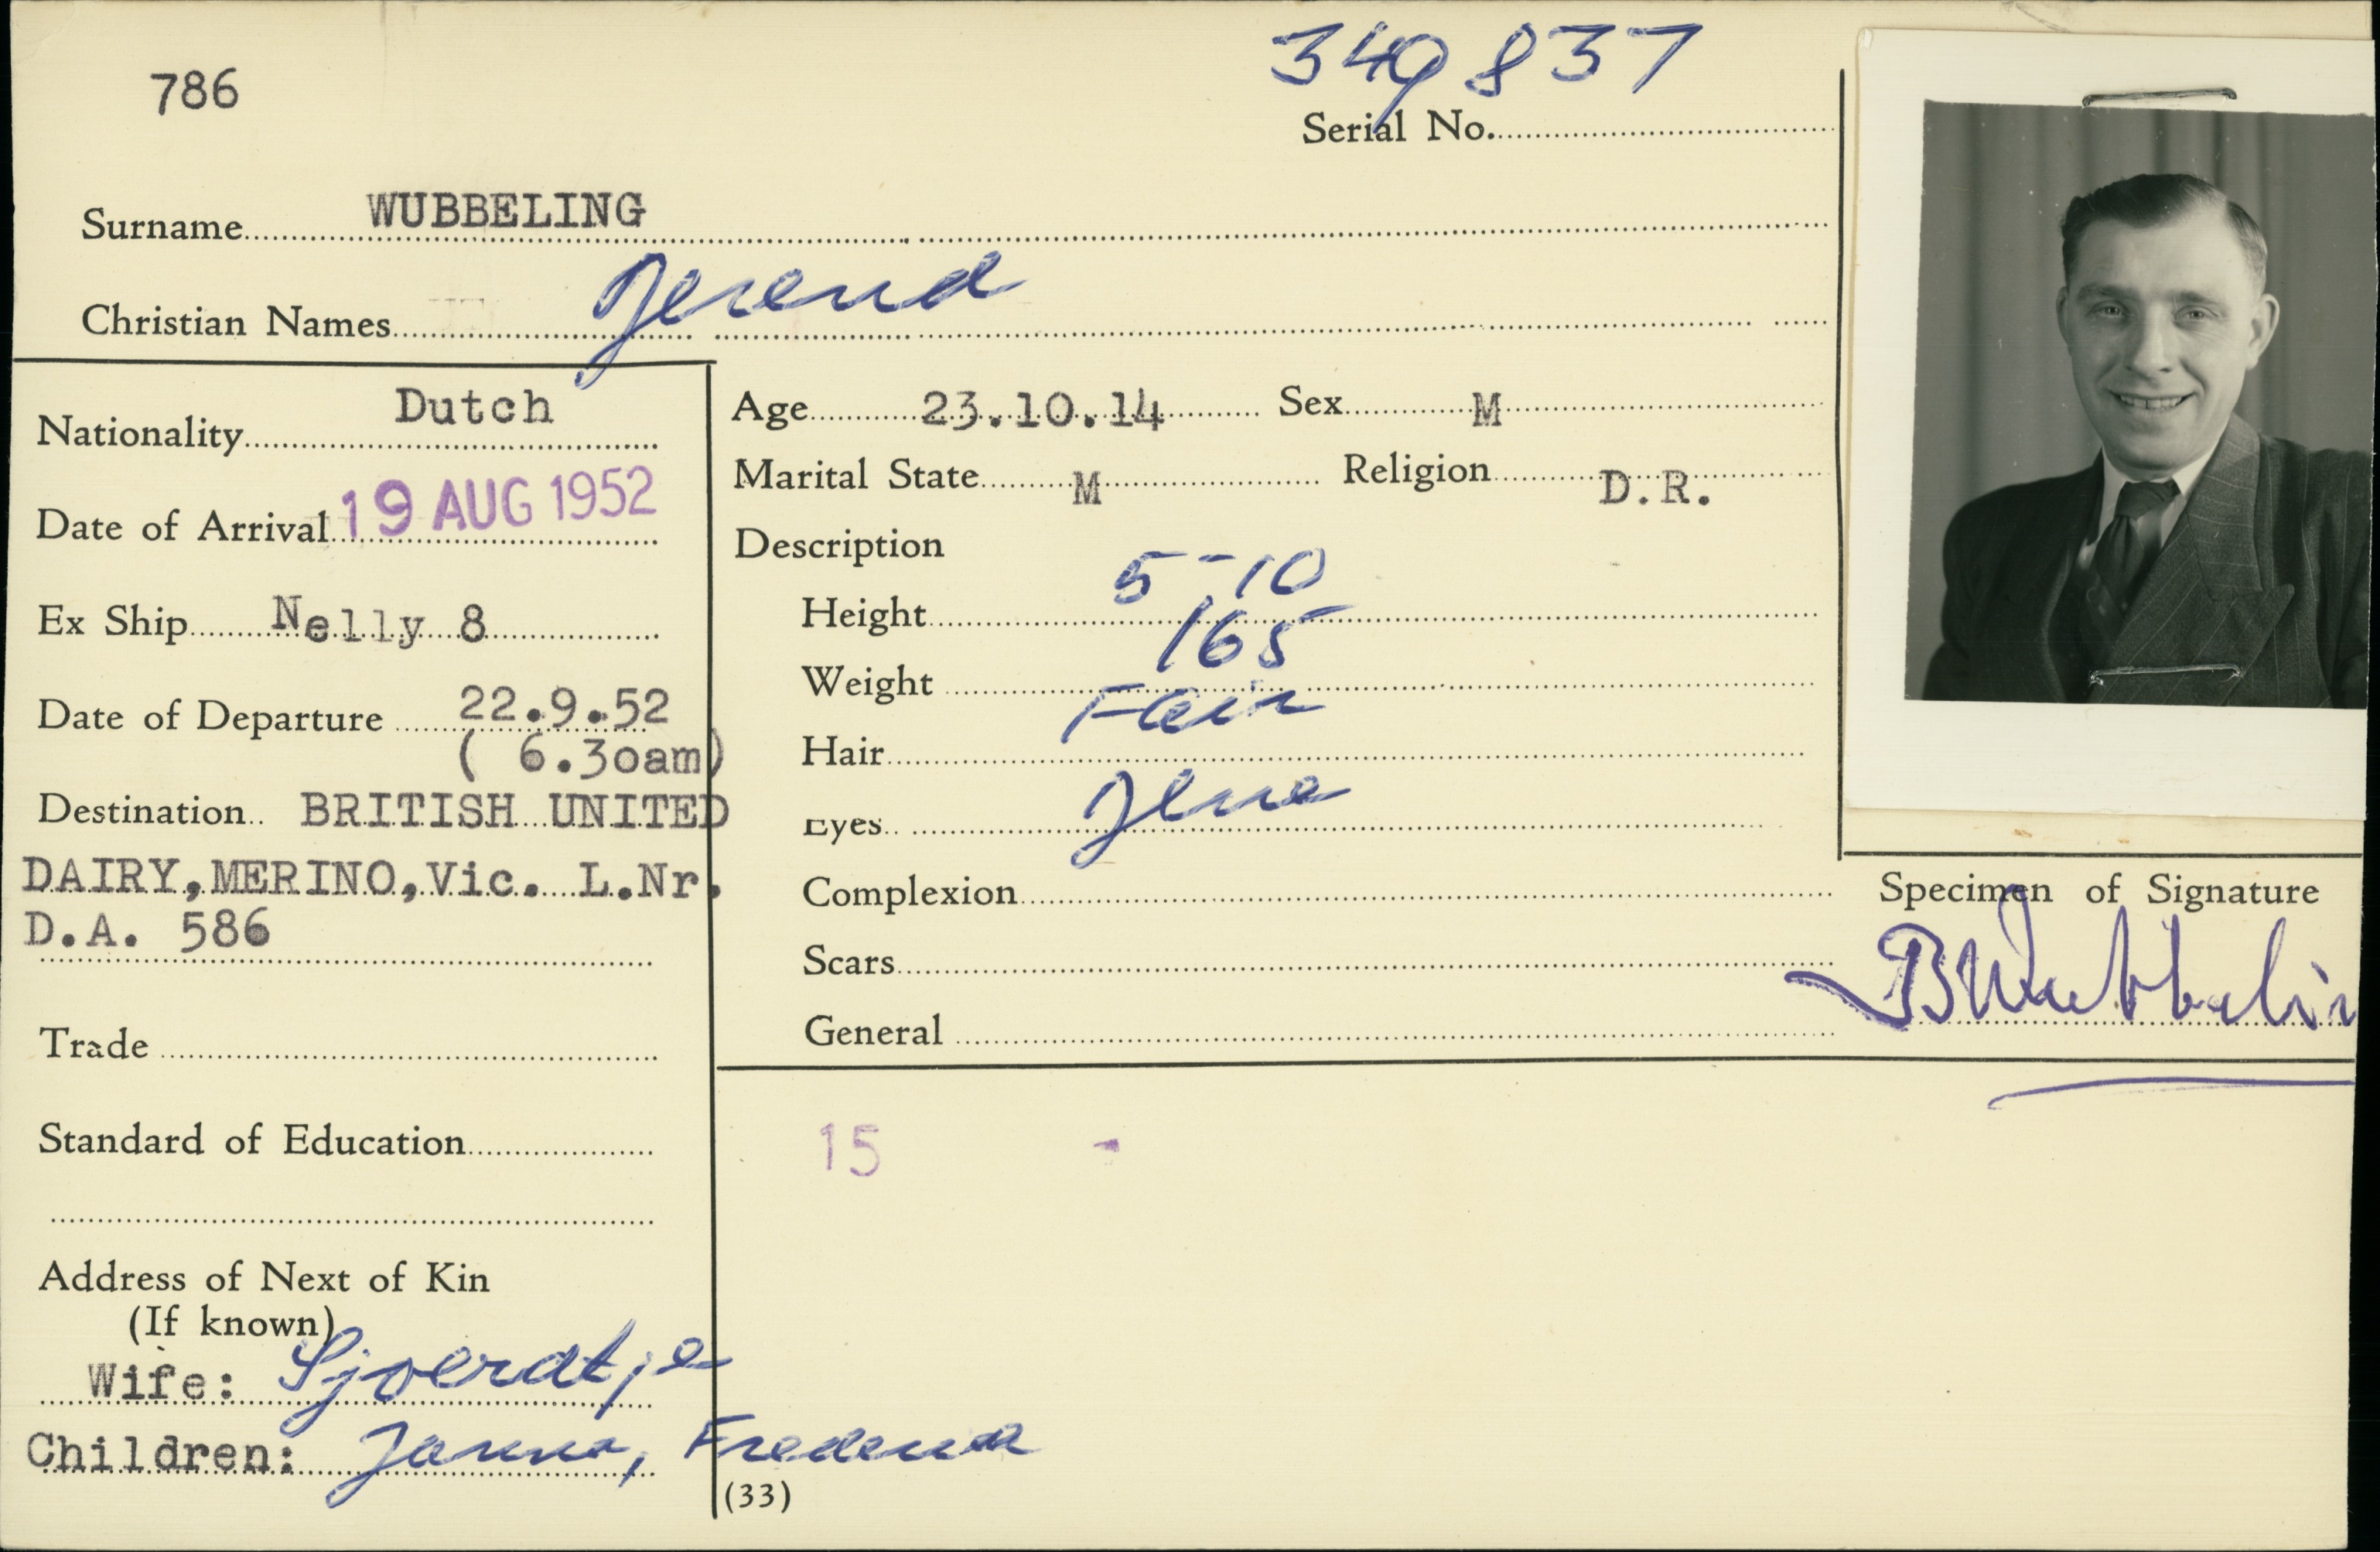 786
349837
Serial No.
Surname WUBBELING
Christian Names Gerend
Nationality Dutch
Date of Arrival 19 AUG 1952
Ex Ship Nelly 8
Date of Departure 22.9.52
( 6.30am)
Destination BRITISH UNITED
DAIRY, MERINO, Vic. L.Nr.
D.A. 586
Trade
Standard of Education
Address of Next of Kin
(If known)
Wife: Sjoerdtje
Children: Janna,
Age 23.10.14 Sex M
Marital State M Religion D.R.
Description
Height 5-10
Weight 165
Hair Fair
Eyes
Complexion
Scars
General
Specimen of Signature
BWubbelin
15 -
(33)